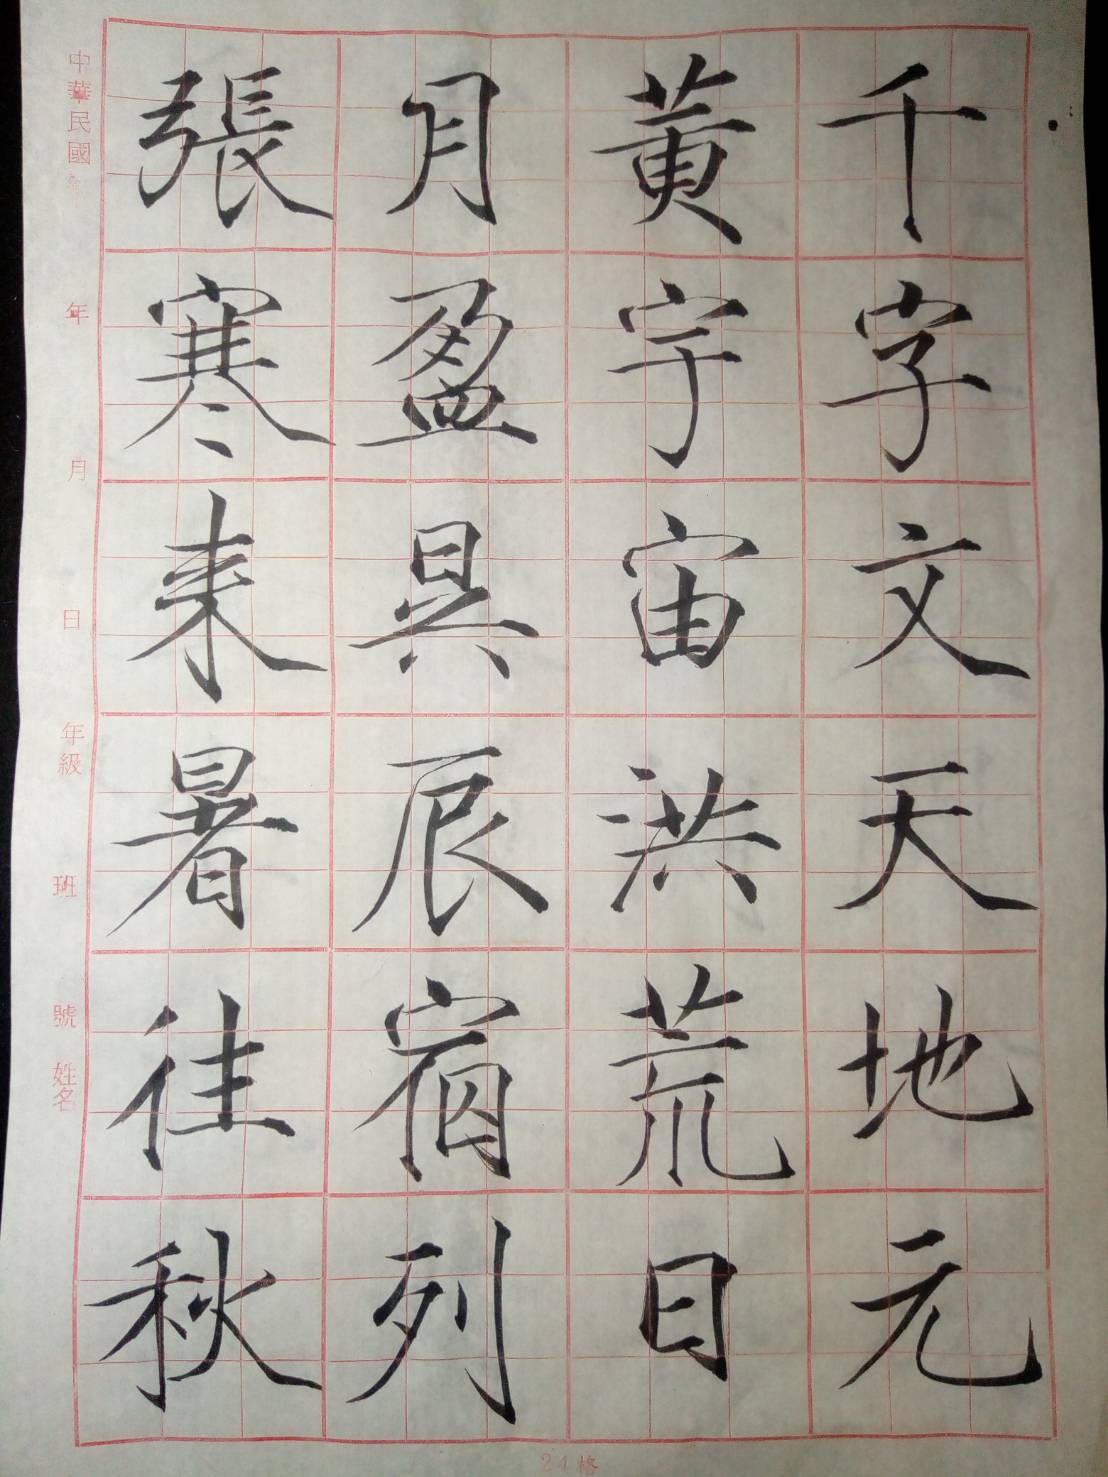 千字文天地元
黃宇宙洪荒日
月盈昃辰宿列
張寒來暑往秋
中華民國 年 月 日 年級 班 號 姓名
24格